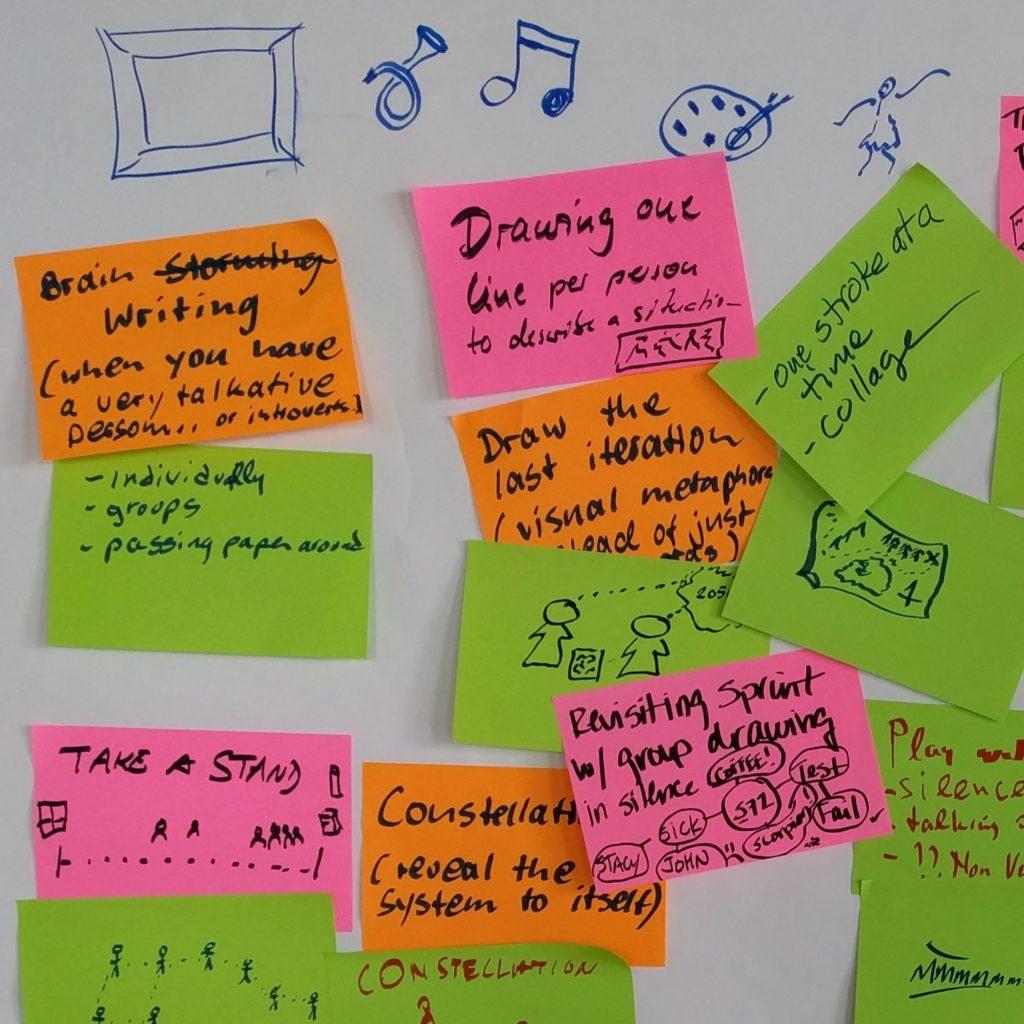 Brain Storming
Writing
(when you have
a very talkative
person... or introverts)
- Individually
- groups
- passing paper around
Drawing one
line per person
to describe a situation
- one stroke at a
time
- collage
Draw the
last iteration
(visual metaphors
of just
205
TAKE A STAND
Constellati
(reveal the
system to itself)
Revisiting Sprint
w/ group drawing
in silence
COFFEE!
Test
572
Fail
SICK
STACY
JOHN
CONSTELLATION
Play
- silence
- talking
- !! Non Ve